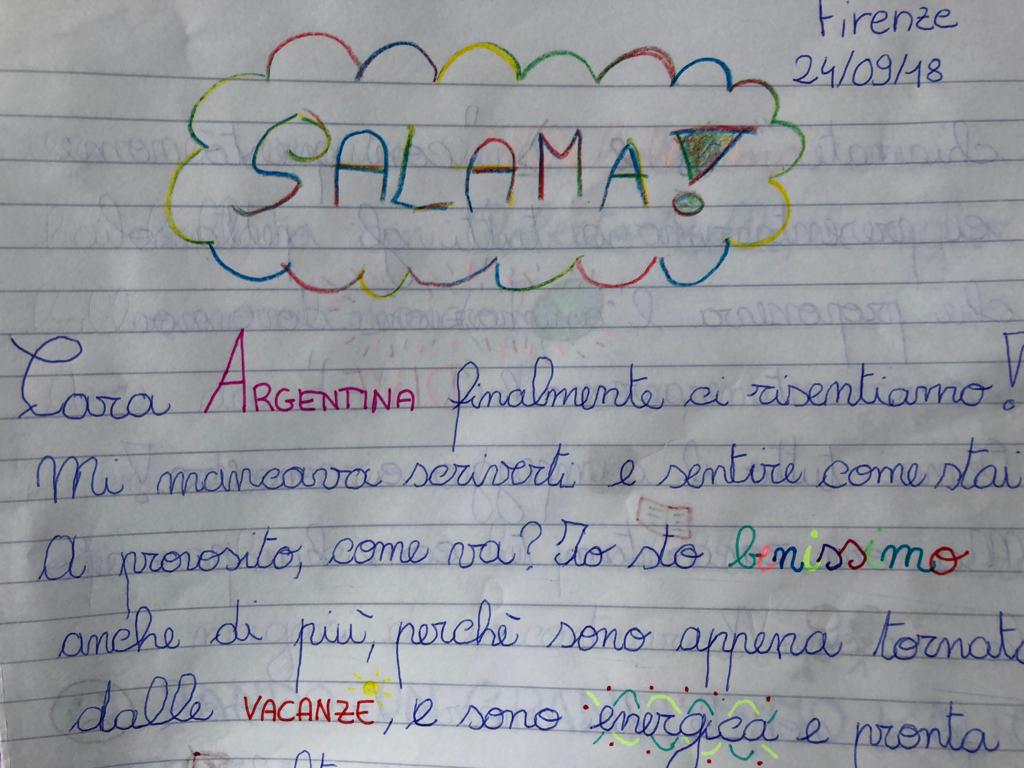 Firenze
24/09/18
SALAMA!
Cara ARGENTINA finalmente ci risentiamo!
Mi mancava scriverti e sentire come stai
A proposito, come va? Io sto benissimo
anche di più, perchè sono appena
dalle VACANZE, e sono energica e pronta